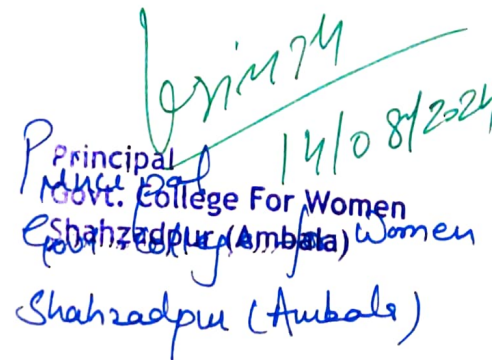 14/08/2024
Principal
Govt. College For Women
Shahzadpur (Ambala)
Principal
Govt. College for Women
Shahzadpur (Ambala)